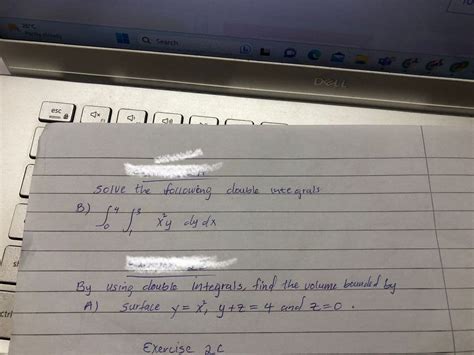 Search
DELL
esc
Solve the following double integrals
B) ∫₀⁴ ∫₁³ x²y dy dx
By using double Integrals, find the volume bounded by
A) Surface y = x², y+z = 4 and z=0.
Exercise 2C